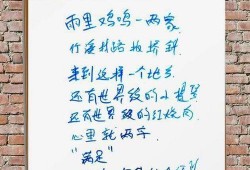 雨里鸡鸣一两家
竹溪村路板桥斜
来到这样一个地方
还有世界级的小提琴
还有世界级的红烧肉
心里就两字
“满足”